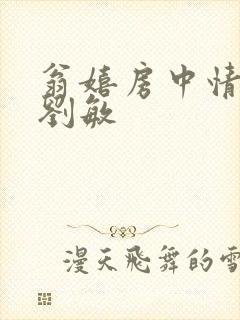 翁嬉房中情
劉敏
漫天飛舞的雪